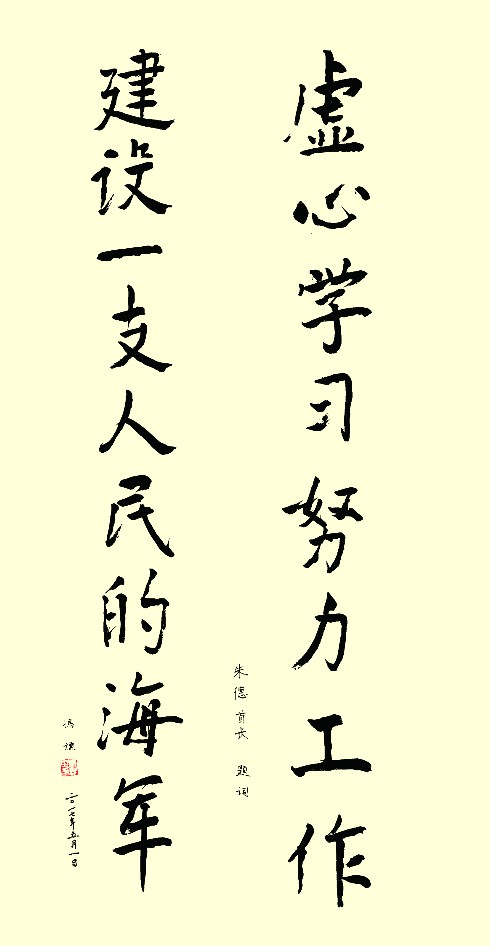 虚心学习努力工作
建设一支人民的海军
朱德首长 题词
二〇一七年五月一日